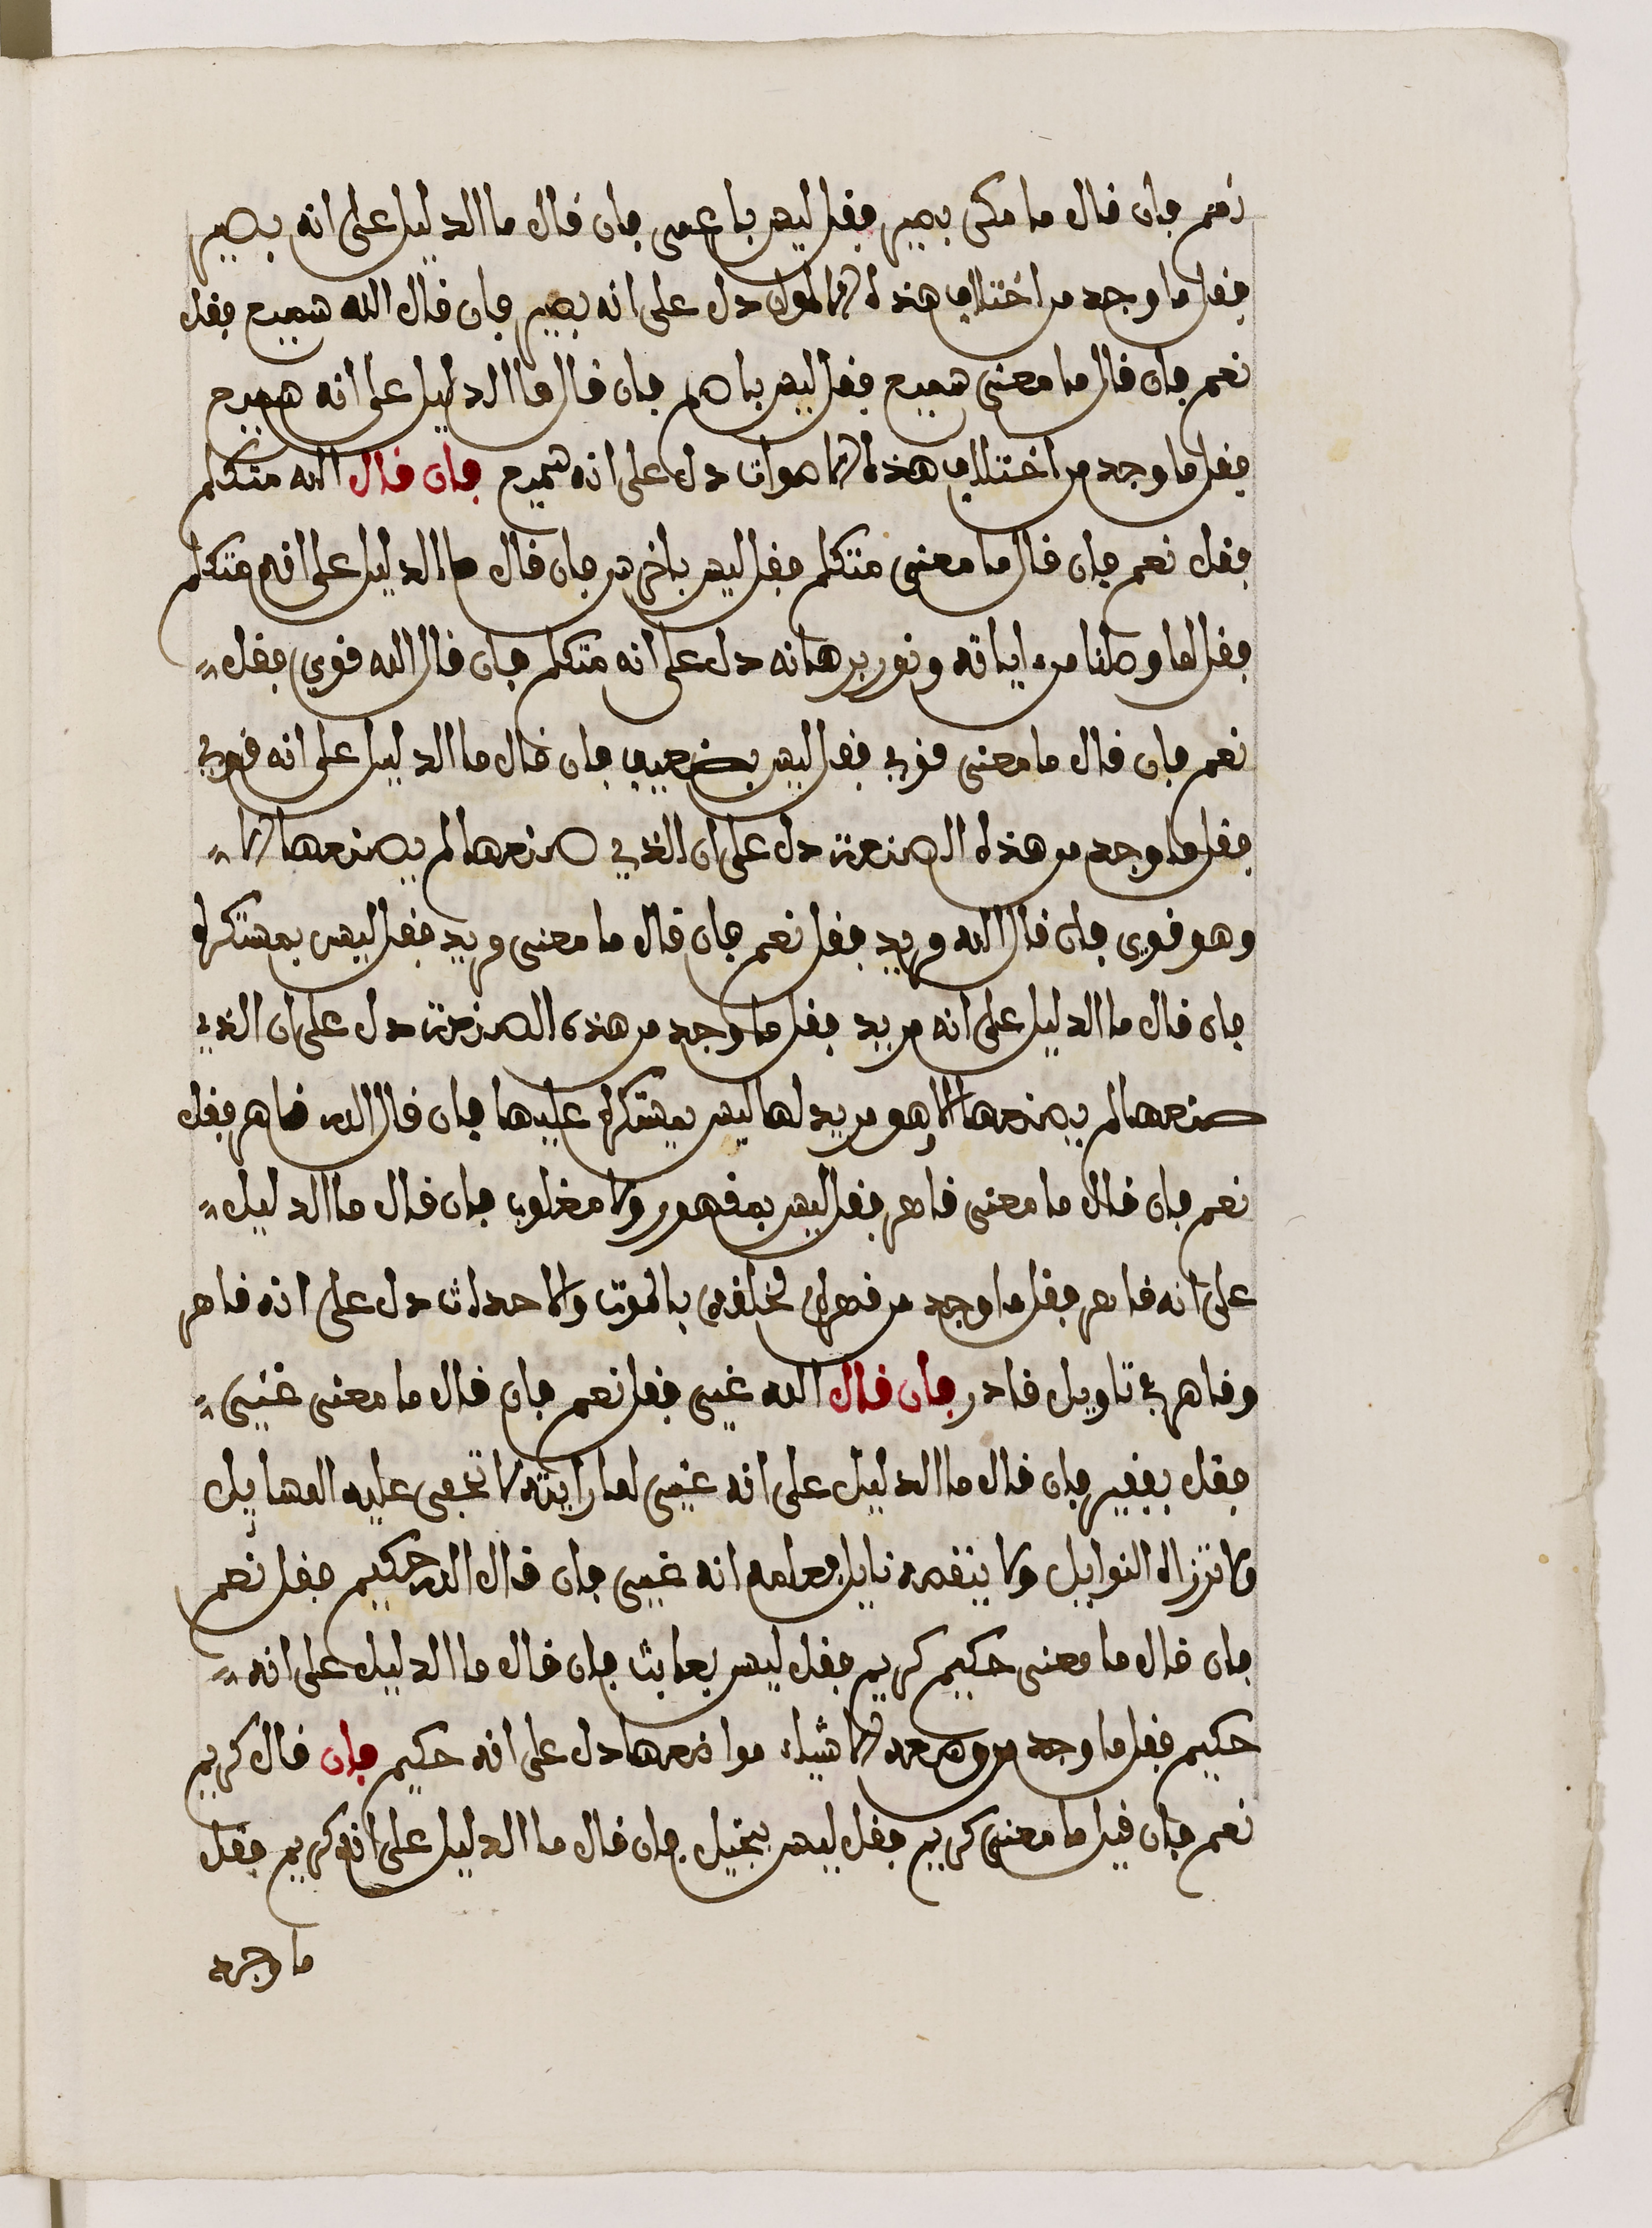 نعم فان قال ما معنى بصير فقل ليس باعمى فان قال ما الدليل على انه بصير
فقل ما وجد من اختلاف هذه الالوان دل على انه بصير فان قال الله سميع فقل
نعم فان قال ما معنى سميع فقل ليس باصم فان قال ما الدليل على انه سميع
فقل ما وجد من اختلاف هذه الاصوات دل على انه سميع فان قال الله متكلم
فقل نعم فان قال ما معنى متكلم فقل ليس باخرس فان قال ما الدليل على انه متكلم
فقل لما وصلنا من اياته ونور برهانه دل على انه متكلم فان قال الله قوي فقل
نعم فان قال ما معنى قوي فقل ليس بضعيف فان قال ما الدليل على انه قوي
فقل ما وجد من هذه الصنعة دل على ان الذي صنعها لم يصنعها الا
وهو قوي فان قال الله مريد فقل نعم فان قال ما معنى مريد فقل ليس بمستكره
فان قال ما الدليل على انه مريد فقل ما وجد من هذه الصنعة دل على ان الذي
صنعها لم يصنعها الا هو مريد لها ليس بمستكره عليها فان قال الله قاهر فقل
نعم فان قال ما معنى قاهر فقل ليس بمقهور ولا مغلوب فان قال ما الدليل
على انه قاهر فقل ما وجد من قهره لخلقه بالموت والاحداث دل على انه قاهر
وقاهر في تاويل قادر فان قال الله غني فقل نعم فان قال ما معنى غني
فقل بفقير فان قال ما الدليل على انه غني لما رايته لا تخفى عليه المسايل
ولا تزاله النوايل ولا ينقصه نايل فعلمه انه غني فان قال الله حكيم فقل نعم
فان قال ما معنى حكيم كريم فقل ليس بعابث فان قال ما الدليل على انه
حكيم فقل ما وجد من وضعه الاشياء مواضعها دل على انه حكيم فان قال كريم
نعم فان قيل ما معنى كريم فقل ليس ببخيل فان قال ما الدليل على انه كريم فقل
ما وجد